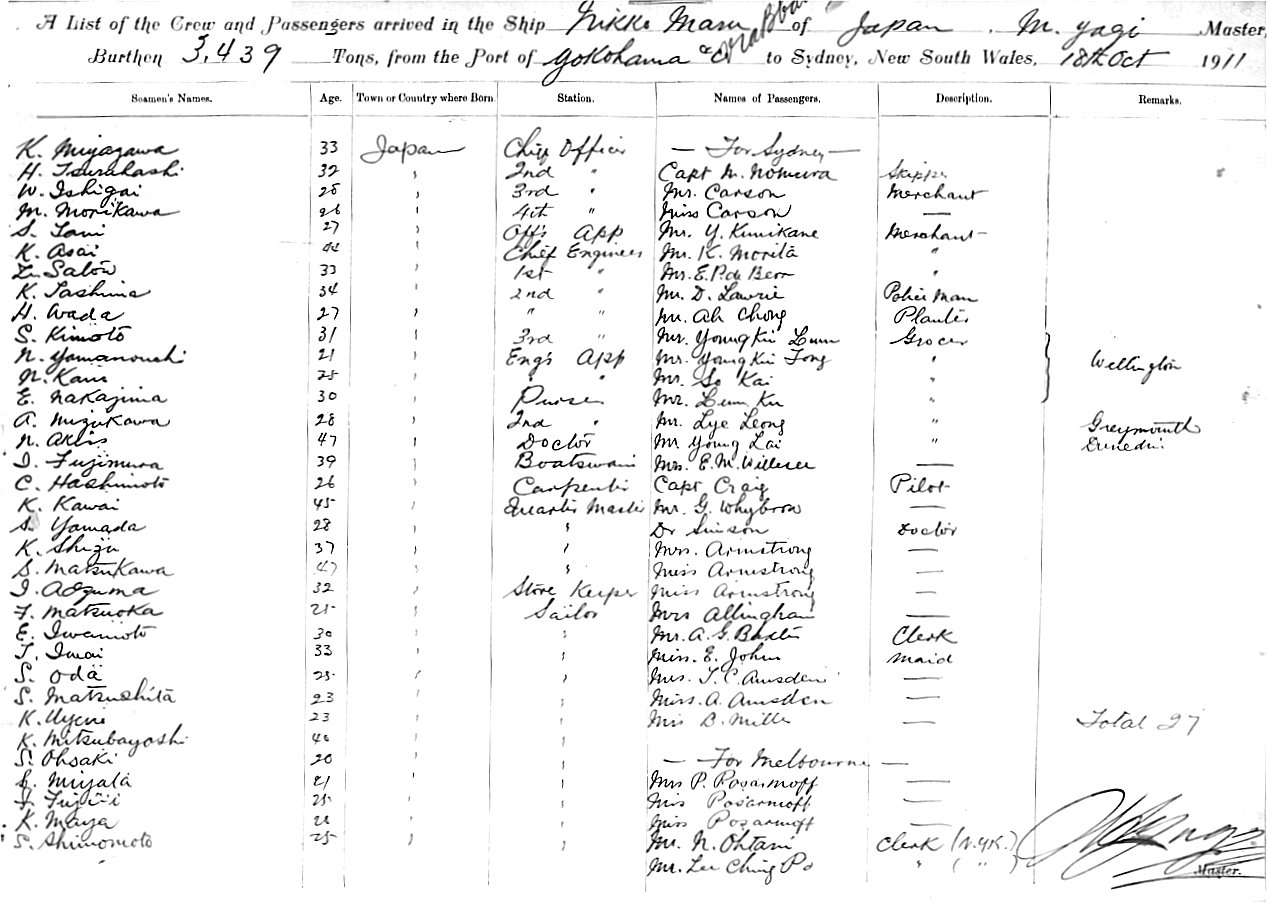 A List of the Crew and Passengers arrived in the Ship Nikko Maru of Japan. M. Yagi Master,
Burthen 3,439 Tons, from the Port of Yokohama & via to Sydney, New South Wales, 18th Oct 1911
Seamen's Names. Age. Town or Country where Born Station. Names of Passengers. Description. Remarks.
K. Miyazawa 33 Japan Chief Officer — For Sydney —
H. Tsurahashi 32 " 2nd " Capt M. Nomura Skipper
W. Ishigai 28 " 3rd " Mr. Carson Merchant
M. Morikawa 26 " 4th " Miss Carson —
S. Tani 27 " Off's App Mr. Y. Kunikane Merchant
K. Asai 44 " Chief Engineer Mr. K. Morita "
Z. Satow 33 " 1st " Mr. E.P. de Berr "
K. Tashima 34 " 2nd " Mr. D. Lawrie Police Man
H. Wada 27 " " " Mr. Ah Chong Planter
S. Kimoto 31 " 3rd " Mr. Young Kii Lum Grocer
N. Yamanouchi 21 " Eng's App Mr. Young Kii Fong " Wellington
N. Kani 25 " " " Mr. So Kai "
E. Nakajima 30 " Purser Mr. Lum Ku "
A. Mizukawa 28 " 2nd " Mr. Lye Leong " Greymouth
N. 47 " Doctor Mr Young Lai " Dunedin
I. Fujimura 39 " Boatswain Mrs. E.M. —
C. Hashimoto 26 " Carpenter Capt Craig Pilot
K. Kawai 45 " Quarter Master Mr. G. Whyborn
S. Yamada 28 " " Dr Simson Doctor
K. Shizu 37 " " Mrs. Armstrong —
S. Matsukawa 47 " " Miss Armstrong —
I. Adzuma 32 " Store Keeper Miss Armstrong —
F. Matsuoka 25 " Sailor Mrs Allingham —
E. Iwamoto 30 " " Mr. A.G. Baxter Clerk
T. Imai 33 " " Miss. E. John Maid
S. Oda 25 " " Mrs. T.C. Amsden —
S. Matsushita 23 " " Miss. A. Amsden —
K. Uyeno 23 " " Miss B. Mills — Total 27
K. Mitsubayashi 40 " "
S. Ohsaki 20 " " — For Melbourne —
Miyata 21 " " Mrs P. Posarmoff —
Fujii 25 " " Miss Posarmoff —
K. Maya " " Miss Posarmoff —
S. Shimomoto 25 " " Mr. N. Ohtani Clerk (N.Y.K.)
Mr. Lee Ching Po " ( " )
Master.